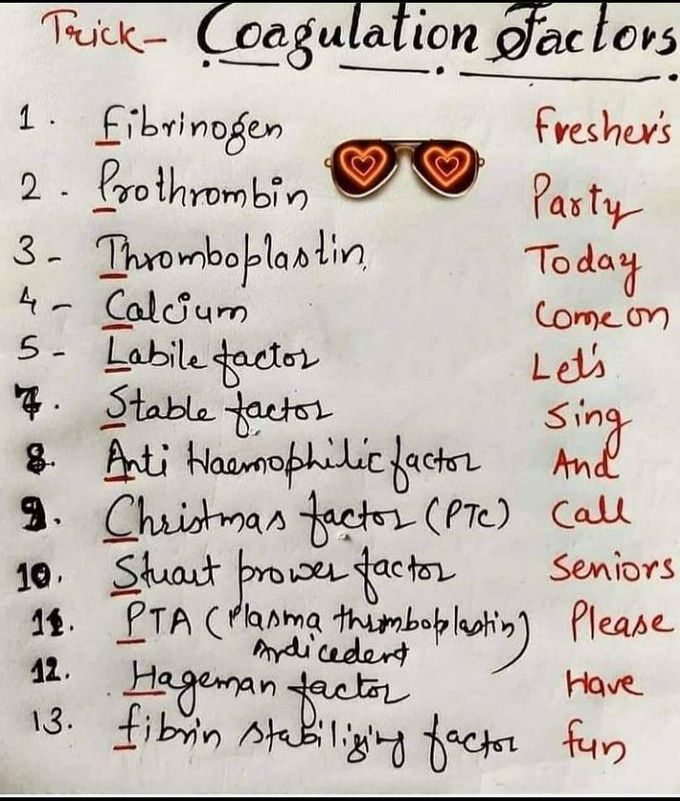 Trick - Coagulation Factors
1. Fibrinogen Fresher's
2. Prothrombin Party
3- Thromboplastin Today
4- Calcium Come on
5- Labile factor Let's
7. Stable factor Sing
8. Anti Haemophilic factor And
9. Christmas factor (PTC) Call
10. Stuart prower factor Seniors
11. PTA (Plasma thrmboplastin) Please
Ardicedent
12. Hageman factor Have
13. fibrin stabilizing factor fun